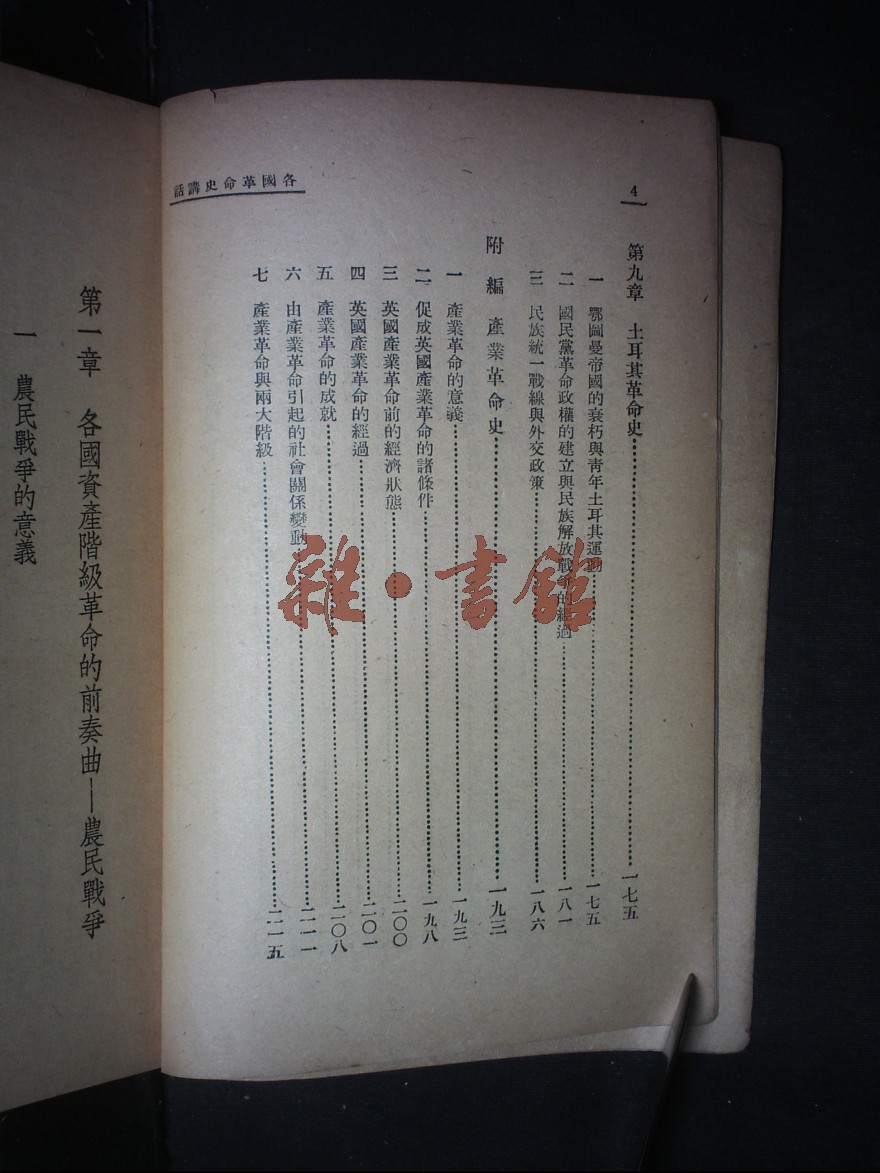 4
各國革命史講話
第九章 土耳其革命史………一七五
一 鄂圖曼帝國的衰朽與靑年土耳其運動………一七五
二 國民黨革命政權的建立與民族解放戰爭的經過………一八一
三 民族統一戰線與外交政策………一八六
附編 產業革命史………一九三
一 產業革命的意義………一九三
二 促成英國產業革命的諸條件………一九八
三 英國產業革命前的經濟狀態………二〇〇
四 英國產業革命的經過………二〇一
五 產業革命的成就………二〇八
六 由產業革命引起的社會關係變動………二一一
七 產業革命與兩大階級………二一五
第一章 各國資產階級革命的前奏曲—農民戰爭
一 農民戰爭的意義
雜·書館